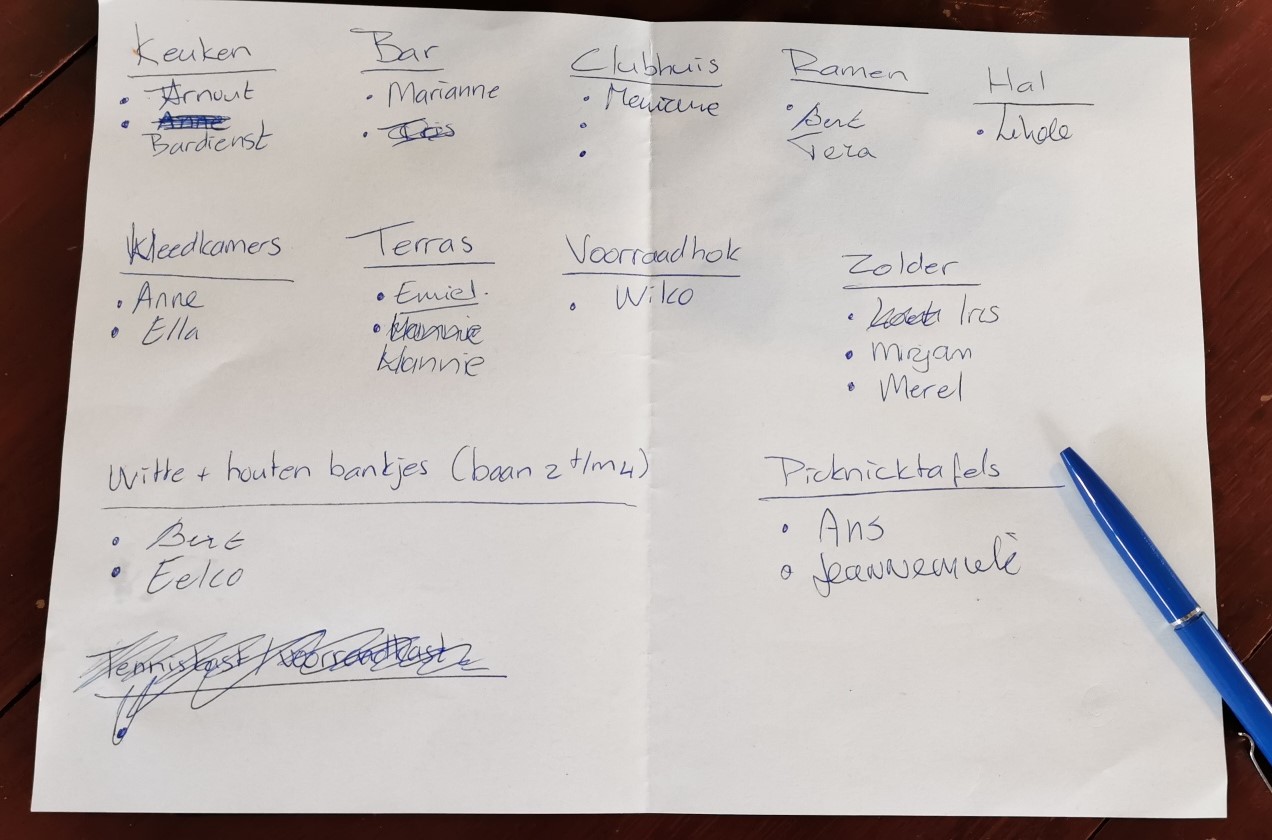 Keuken
• Arnout
• Anne
Bardienst
Bar
• Marianne
Clubhuis
•
•
Ramen
• Bert
Vera
Hal
Kleedkamers
• Anne
• Ella
Terras
• Emiel.
• Hannie
Hannie
Voorraadhok
• Wilko
Zolder
• Iris
• Mirjam
• Merel
Witte + houten bankjes (baan 2 t/m 4)
• Bert
• Eelco
Picknicktafels
• Ans
Tenniskast / voorraadkast
•